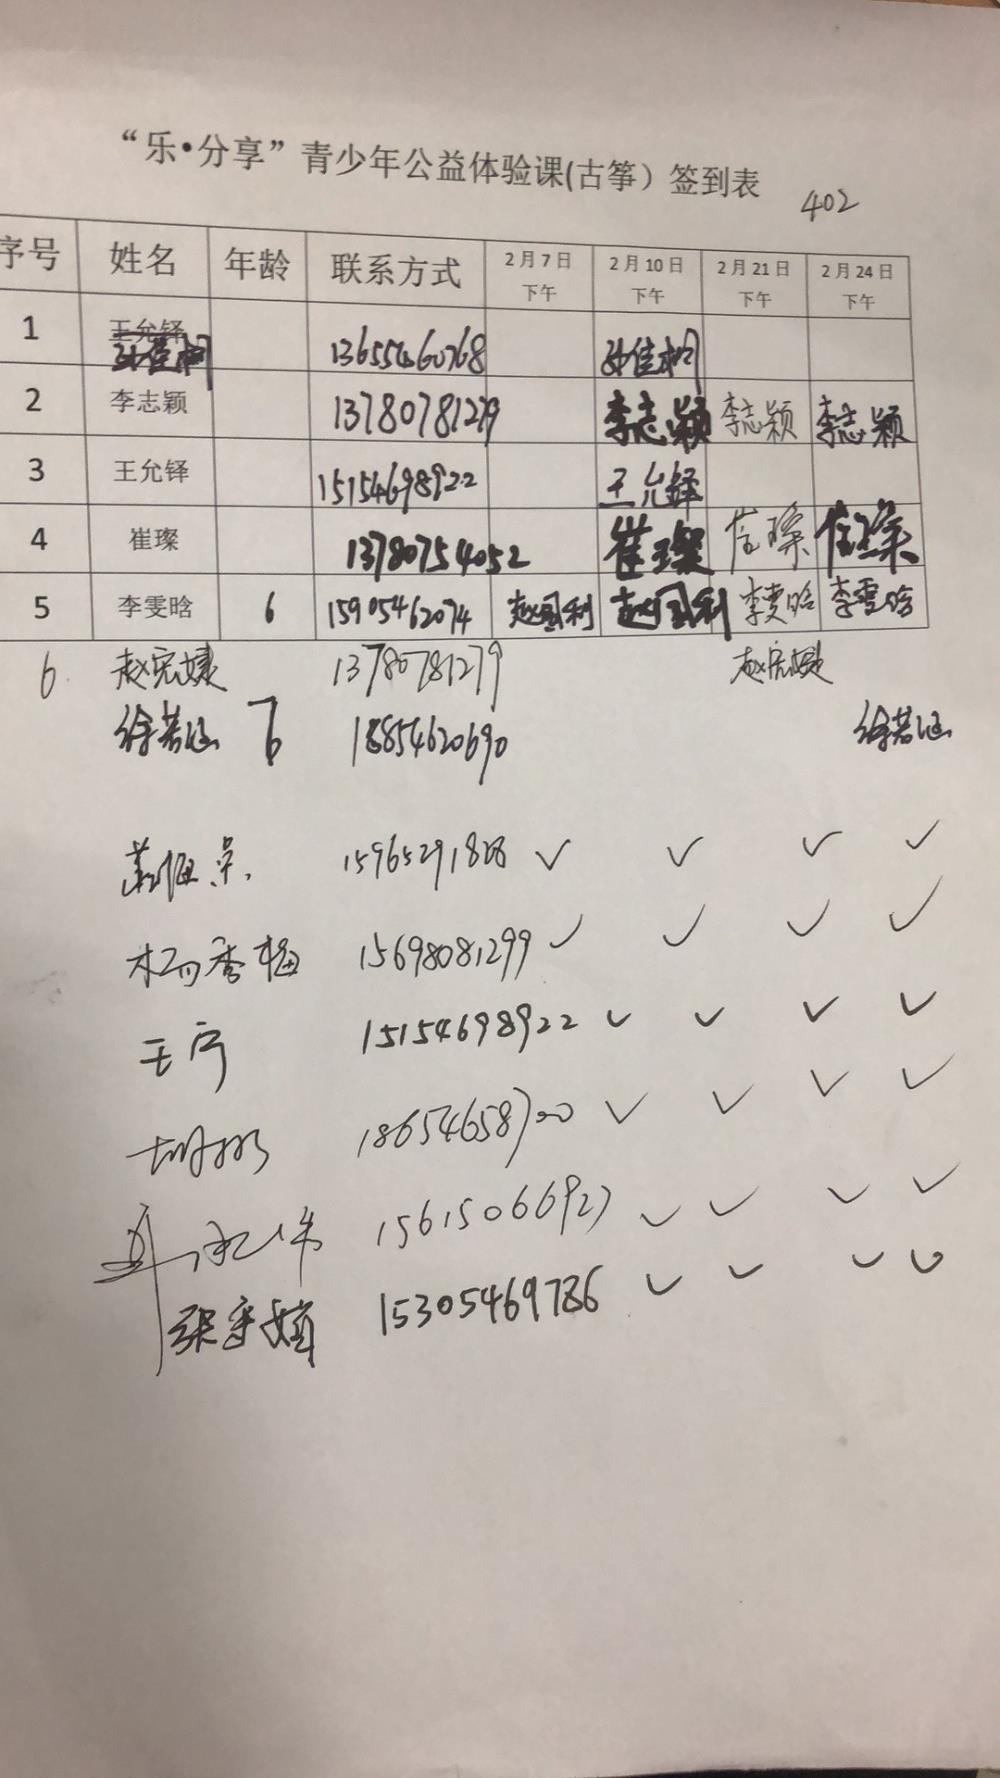 “乐•分享”青少年公益体验课(古筝）签到表
402
序号 姓名 年龄 联系方式 2月7日下午 2月10日下午 2月21日下午 2月24日下午
1 王允铎 孙佳桐 13655460768 孙佳桐
2 李志颖 13780781279 李志颖 李志颖 李志颖
3 王允铎 15154698922 王允铎
4 崔璨 13780754052 崔璨 崔璨 崔璨
5 李雯晗 6 15905462074 赵国利 赵国利 李雯晗 李雯晗
6 赵宪婕 13780781279 赵宪婕
徐若涵 6 18854620690 徐若涵
15965291828 ✓ ✓ ✓ ✓
杨香梅 15698081299 ✓ ✓ ✓ ✓
王宁 15154698922 ✓ ✓ ✓ ✓
胡彬 18654658700 ✓ ✓ ✓ ✓
15615066927 ✓ ✓ ✓ ✓
15305469786 ✓ ✓ ✓ ✓